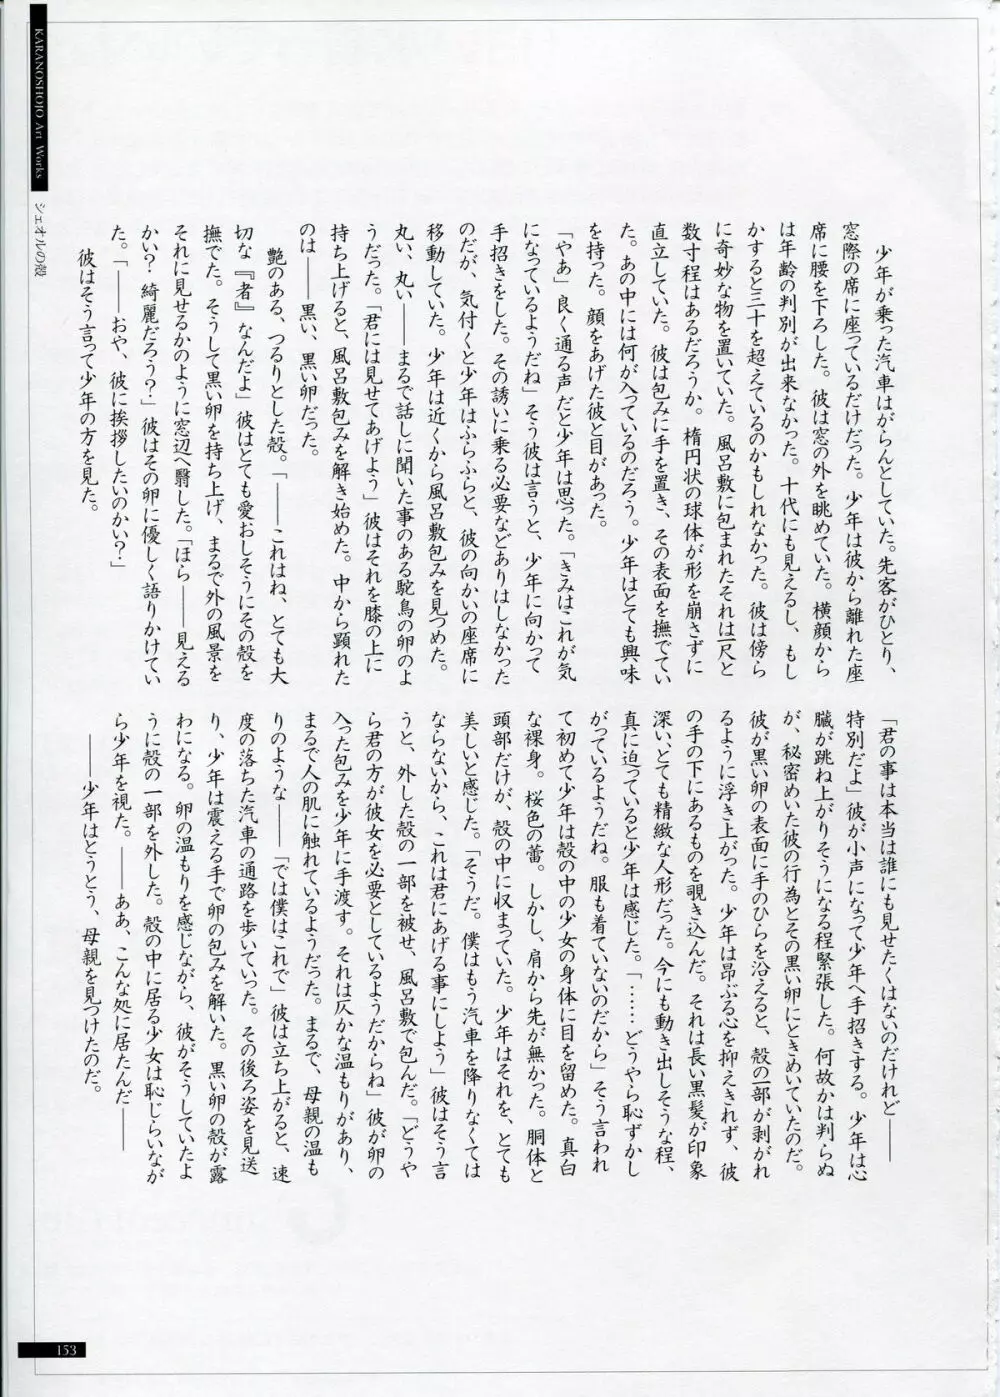 KARANOSHOJO Art Works
シェオルの殻
　少年が乗った汽車はがらんとしていた。先客がひとり、
窓際の席に座っているだけだった。少年は彼から離れた座
席に腰を下ろした。彼は窓の外を眺めていた。横顔から
は年齢の判別が出来なかった。十代にも見えるし、もし
かすると三十を超えているのかもしれなかった。彼は傍ら
に奇妙な物を置いていた。風呂敷に包まれたそれは一尺と
数寸程はあるだろうか。楕円状の球体が形を崩さずに
直立していた。彼は包みに手を置き、その表面を撫でてい
た。あの中には何が入っているのだろう。少年はとても興味
を持った。顔をあげた彼と目があった。
「やあ」良く通る声だと少年は思った。「きみはこれが気
になっているようだね」そう彼は言うと、少年に向かって
手招きをした。その誘いに乗る必要などありはしなかった
のだが、気付くと少年はふらふらと、彼の向かいの座席に
移動していた。少年は近くから風呂敷包みを見つめた。
丸い、丸い――まるで話しに聞いた事のある駝鳥の卵のよ
うだった。「君には見せてあげよう」彼はそれを膝の上に
持ち上げると、風呂敷包みを解き始めた。中から顕れた
のは――黒い、黒い卵だった。
　艶のある、つるりとした殻。「――これはね、とても大
切な『者』なんだよ」彼はとても愛おしそうにその殻を
撫でた。そうして黒い卵を持ち上げ、まるで外の風景を
それに見せるかのように窓辺へ翳した。「ほら――見える
かい？ 綺麗だろう？」彼はその卵に優しく語りかけてい
た。「――おや、彼に挨拶したいのかい？」
　彼はそう言って少年の方を見た。
「君の事は本当は誰にも見せたくはないのだけれど――
特別だよ」彼が小声になって少年へ手招きする。少年は心
臓が跳ね上がりそうになる程緊張した。何故かは判らぬ
が、秘密めいた彼の行為とその黒い卵にときめいていたのだ。
彼が黒い卵の表面に手のひらを沿えると、殻の一部が剥がれ
るように浮き上がった。少年は昂ぶる心を抑えきれず、彼
の手の下にあるものを覗き込んだ。それは長い黒髪が印象
深い、とても精緻な人形だった。今にも動き出しそうな程、
真に迫っていると少年は感じた。「……どうやら恥ずかし
がっているようだね。服も着ていないのだから」そう言われ
て初めて少年は殻の中の少女の身体に目を留めた。真白
な裸身。桜色の蕾。しかし、肩から先が無かった。胴体と
頭部だけが、殻の中に収まっていた。少年はそれを、とても
美しいと感じた。「そうだ。僕はもう汽車を降りなくては
ならないから、これは君にあげる事にしよう」彼はそう言
うと、外した殻の一部を被せ、風呂敷で包んだ。「どうや
ら君の方が彼女を必要としているようだからね」彼が卵の
入った包みを少年に手渡す。それは仄かな温もりがあり、
まるで人の肌に触れているようだった。まるで、母親の温も
りのような――「では僕はこれで」彼は立ち上がると、速
度の落ちた汽車の通路を歩いていった。その後ろ姿を見送
り、少年は震える手で卵の包みを解いた。黒い卵の殻が露
わになる。卵の温もりを感じながら、彼がそうしていたよ
うに殻の一部を外した。殻の中に居る少女は恥じらいなが
ら少年を視た。――ああ、こんな処に居たんだ――
　――少年はとうとう、母親を見つけたのだ。
153